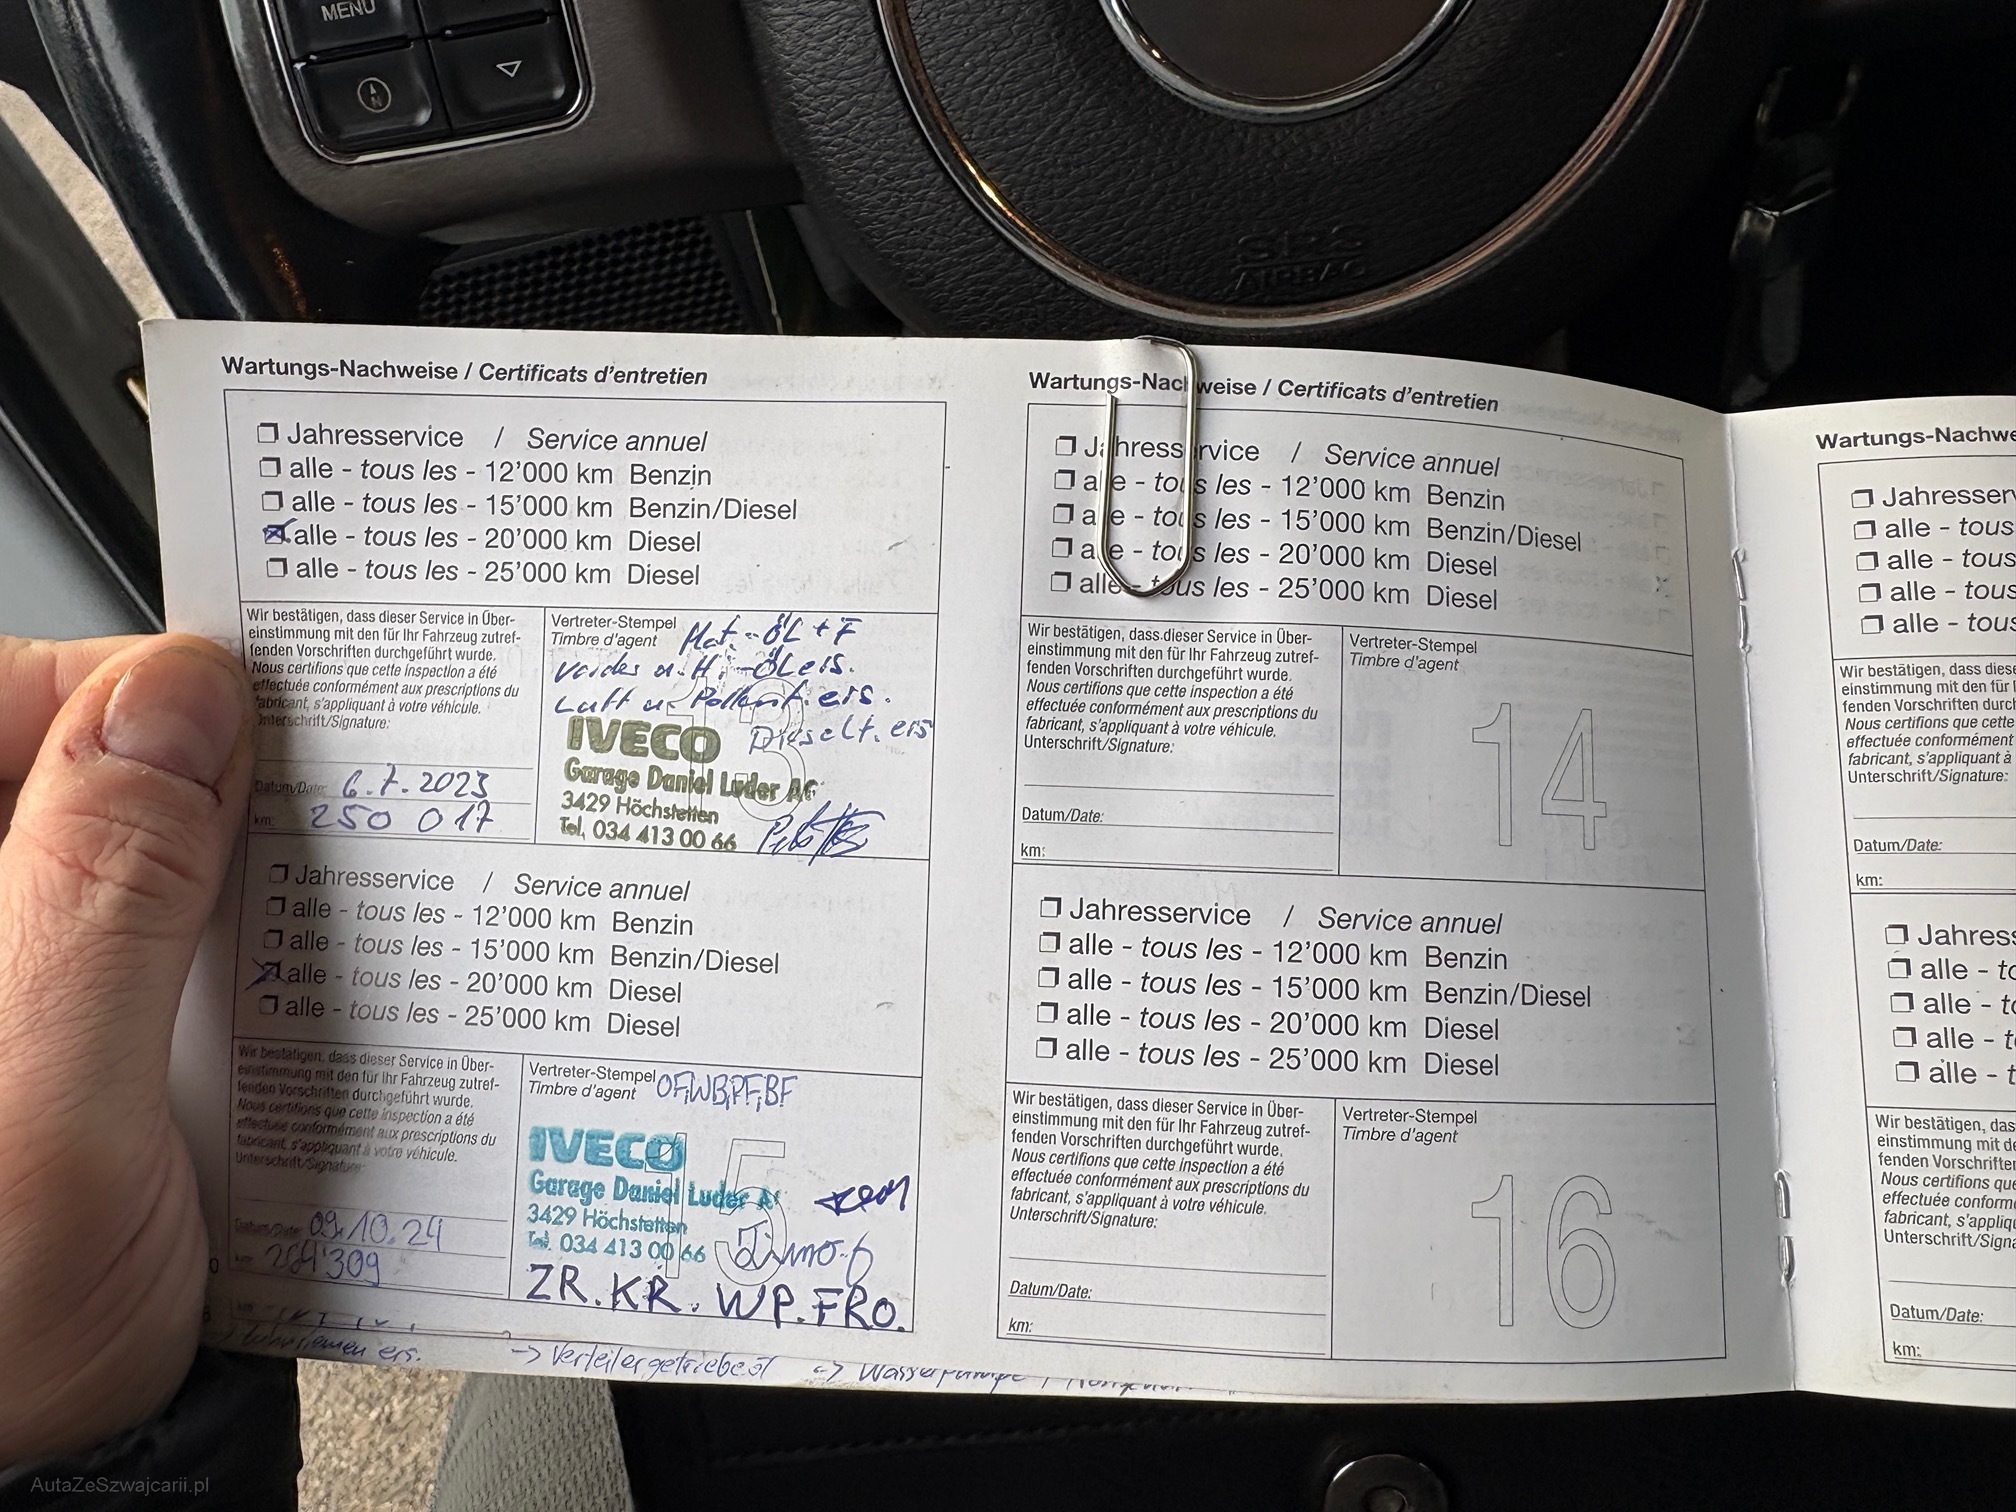 MENU
N
SRS
AIRBAG
Wartungs-Nachweise / Certificats d'entretien
Jahresservice / Service annuel
alle - tous les - 12'000 km Benzin
alle - tous les - 15'000 km Benzin/Diesel
alle - tous les - 20'000 km Diesel
alle - tous les - 25'000 km Diesel
Wir bestätigen, dass dieser Service in Über-
einstimmung mit den für Ihr Fahrzeug zutref-
fenden Vorschriften durchgeführt wurde.
Nous certifions que cette inspection a été
effectuée conformément aux prescriptions du
fabricant, s'appliquant à votre véhicule.
Unterschrift/Signature:
Datum/Date: 6.7.2023
km: 250 017
Vertreter-Stempel
Timbre d'agent
Mot.-ÖL + F
vorders u. Hi.-ÖL ers.
Luft u. Pollenf. ers.
Dieself. ers
13
IVECO
Garage Daniel Luder AG
3429 Höchstetten
Tel. 034 413 00 66
Jahresservice / Service annuel
alle - tous les - 12'000 km Benzin
alle - tous les - 15'000 km Benzin/Diesel
alle - tous les - 20'000 km Diesel
alle - tous les - 25'000 km Diesel
Wir bestätigen, dass dieser Service in Über-
einstimmung mit den für Ihr Fahrzeug zutref-
fenden Vorschriften durchgeführt wurde.
Nous certifions que cette inspection a été
effectuée conformément aux prescriptions du
fabricant, s'appliquant à votre véhicule.
Unterschrift/Signature:
Datum/Date: 09.10.24
km: 264'309
Vertreter-Stempel
Timbre d'agent
OF,WB,PF,BF
15
IVECO
Garage Daniel Luder A
3429 Höchstetten
Tel. 034 413 00 66
ZR. KR. WP. FRO.
ers. -> Verteilergetriebeöl -> Wasserpumpe
Wartungs-Nachweise / Certificats d'entretien
Jahresservice / Service annuel
alle - tous les - 12'000 km Benzin
alle - tous les - 15'000 km Benzin/Diesel
alle - tous les - 20'000 km Diesel
alle - tous les - 25'000 km Diesel
Wir bestätigen, dass dieser Service in Über-
einstimmung mit den für Ihr Fahrzeug zutref-
fenden Vorschriften durchgeführt wurde.
Nous certifions que cette inspection a été
effectuée conformément aux prescriptions du
fabricant, s'appliquant à votre véhicule.
Unterschrift/Signature:
Datum/Date:
km:
Vertreter-Stempel
Timbre d'agent
14
Jahresservice / Service annuel
alle - tous les - 12'000 km Benzin
alle - tous les - 15'000 km Benzin/Diesel
alle - tous les - 20'000 km Diesel
alle - tous les - 25'000 km Diesel
Wir bestätigen, dass dieser Service in Über-
einstimmung mit den für Ihr Fahrzeug zutref-
fenden Vorschriften durchgeführt wurde.
Nous certifions que cette inspection a été
effectuée conformément aux prescriptions du
fabricant, s'appliquant à votre véhicule.
Unterschrift/Signature:
Datum/Date:
km:
Vertreter-Stempel
Timbre d'agent
16
Wartungs-Nachwe
Jahresser
alle - tous
alle - tous
alle - tous
alle - tous
Wir bestätigen, dass diese
einstimmung mit den für I
fenden Vorschriften durch
Nous certifions que cette
effectuée conformément
fabricant, s'appliquant à
Unterschrift/Signature:
Datum/Date:
km:
Jahress
alle - to
alle - to
alle - to
alle - t
Wir bestätigen, dass
einstimmung mit de
fenden Vorschrifte
Nous certifions que
effectuée conform
fabricant, s'appliqu
Unterschrift/Signa
Datum/Date:
km:
AutaZeSzwajcarii.pl